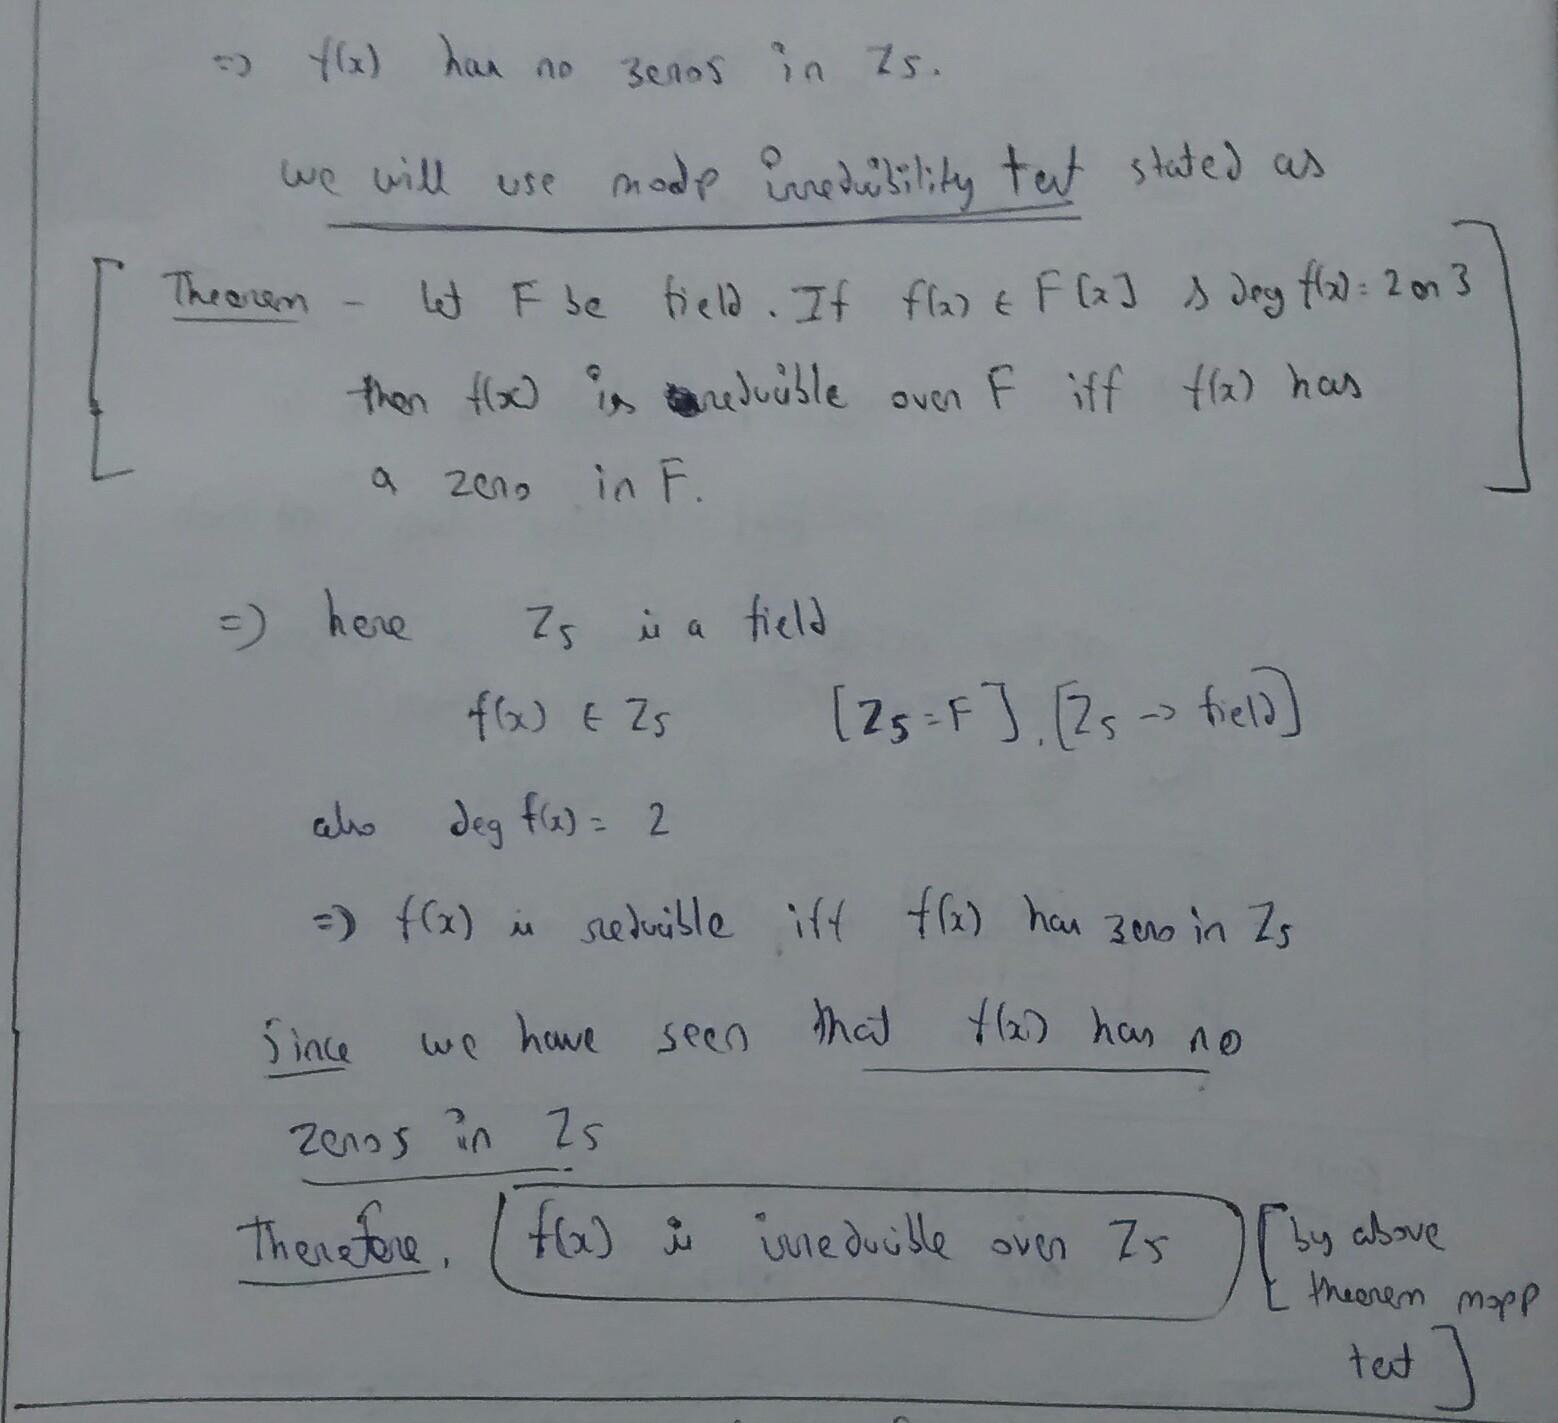 => f(x) has no zeros in Z5.
we will use modp irreducibility test stated as
Theorem - let F be field. If f(x) ∈ F[x] & deg f(x) = 2 or 3
then f(x) is reducible over F iff f(x) has
a zero in F.
=> here Z5 is a field
f(x) ∈ Z5 [Z5 = F]. [Z5 -> field]
also deg f(x) = 2
=> f(x) is reducible iff f(x) has zero in Z5
Since we have seen that f(x) has no
zeros in Z5
Therefore, f(x) is irreducible over Z5 [by above
theorem mopp
test]